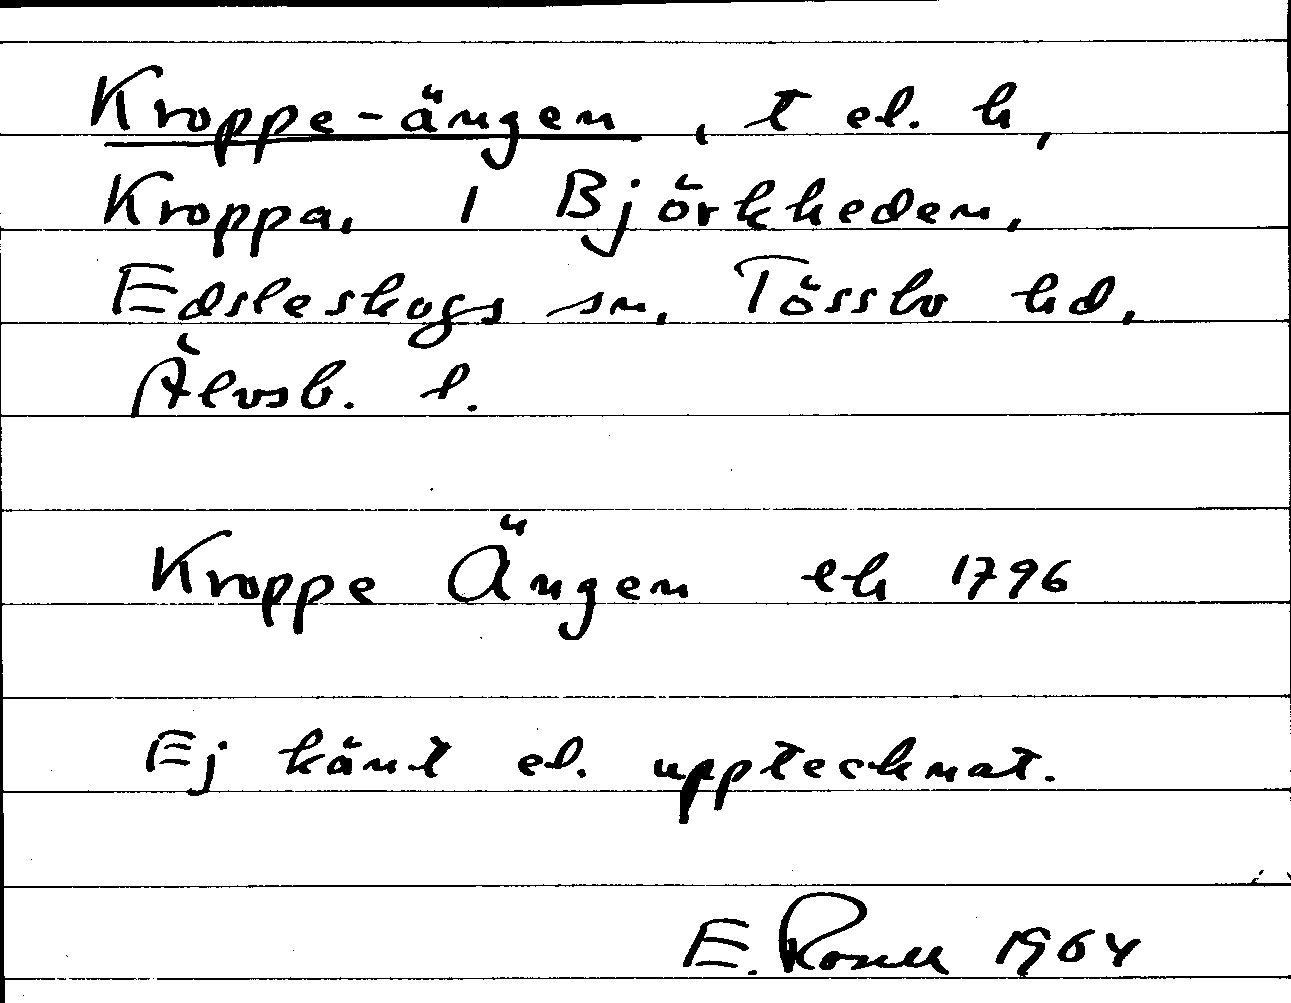 Kroppe-ängen, t el. h,
Kroppa, 1 Björkheden,
Edsleskogs sn, Tössbo hd,
Älvsb. l.
Kroppe Ängen ek 1796
Ej känt el. upptecknat.
E. Rosell 1964